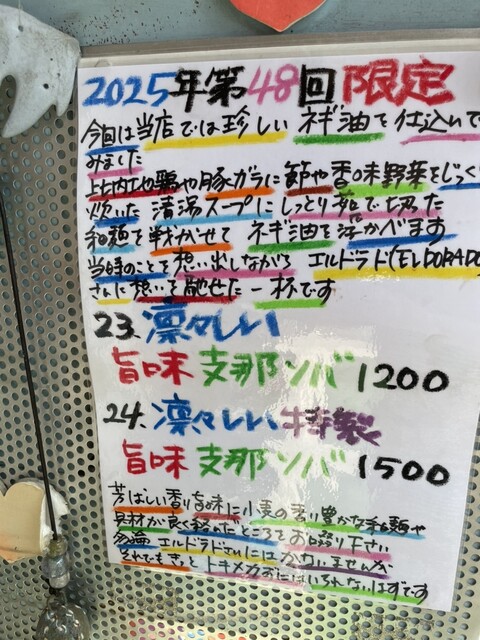 2025年第48回限定
今回は当店では珍しいネギ油を仕込んで
みました
比内地鶏や豚ガラに節や香味野菜をじっく
炊いた清湯スープにしっとり
で切った
和麺を
かせてネギ油を浮かべます
当時のことを想い出しながらエルドラド(ELDORADO
さんに想いを馳せた一杯です
23.凛々しい
旨味支那ソバ1200
24.凛々しい特製
旨味支那ソバ1500
芳ばしい香り旨味に小麦の香り豊かな
麺や
具材が良く絡んだところをお召
り下さい
勿論エルドラドさんにはかないませんが
それでもきっとトキメカずにはいられないはずです